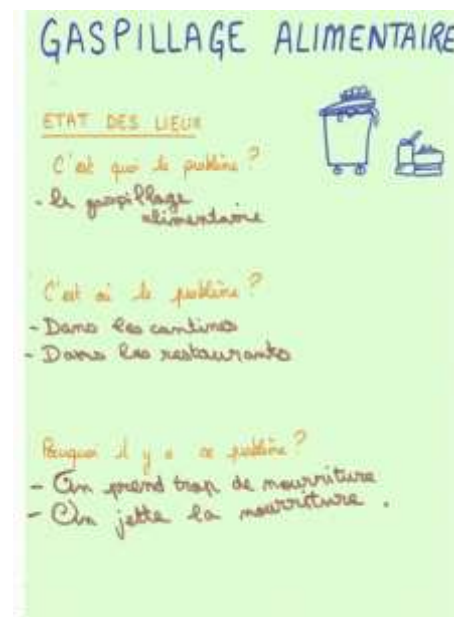 GASPILLAGE ALIMENTAIRE
ETAT DES LIEUX
C'est quoi le problème ?
- le gaspillage
alimentaire
C'est où le problème ?
- Dans les cantines
- Dans les restaurants
Pourquoi il y a ce problème ?
- On prend trop de nourriture
- On jette la nourriture .